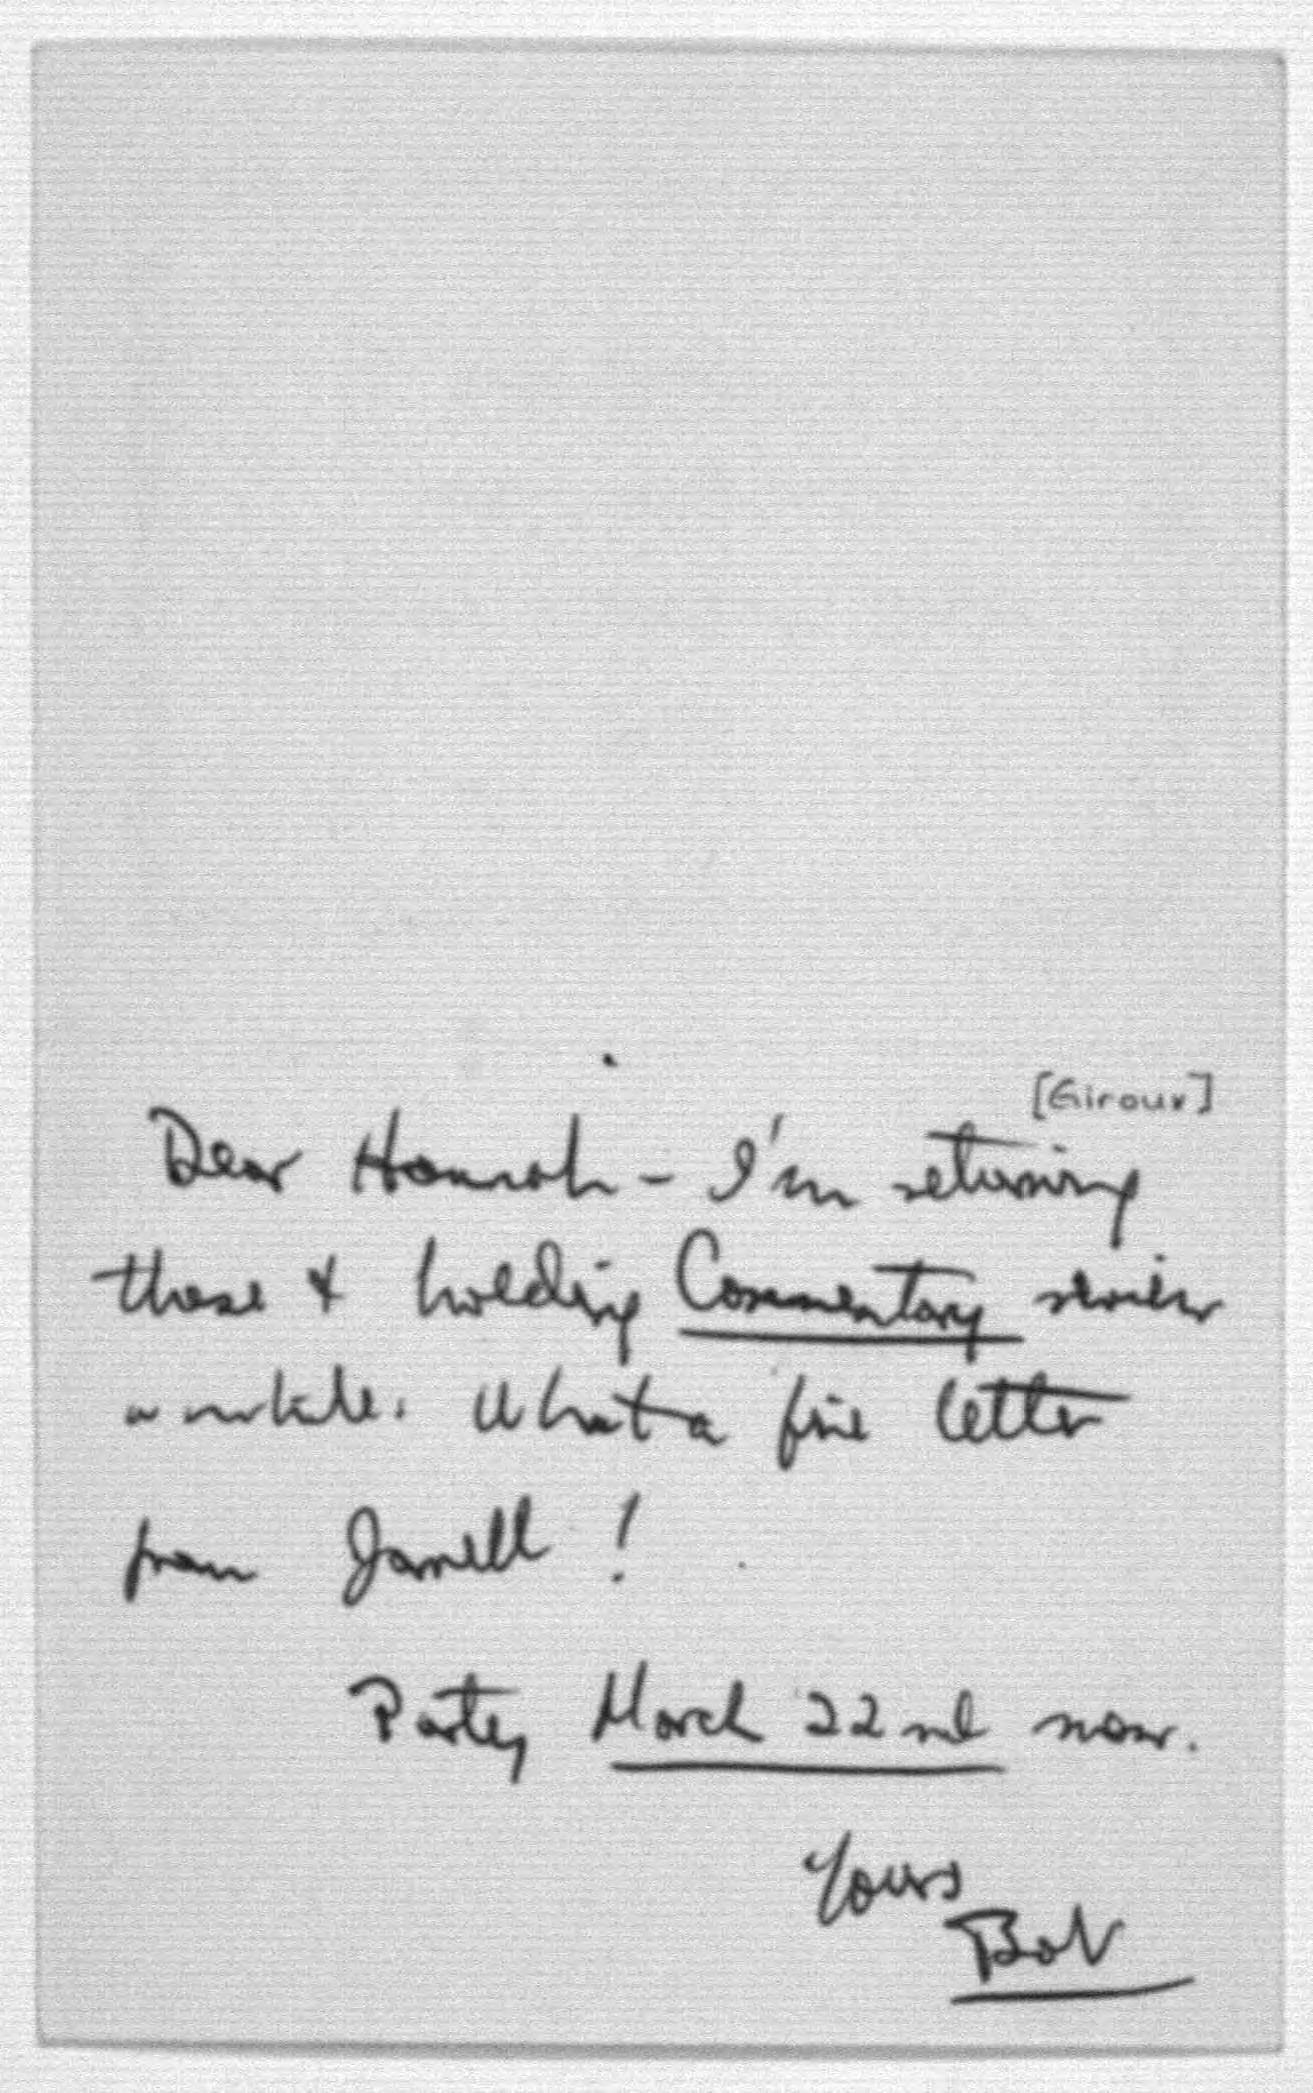 [Giroux]
Dear Hannah – I'm returning
these & holding Commentary review
a while. What a fine letter
from Jarrell!
Party March 22nd now.
Yours
Bob